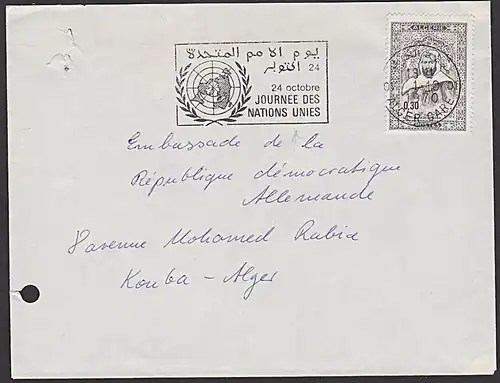 يوم الأمم المتحدة
24 اكتوبر
24 octobre
JOURNEE DES
NATIONS UNIES
ALGERIE
0,30
ALGER-GARE
Embassade de la
République démocratique
Allemande
avenue Mohamed Rabia
Kouba - Alger